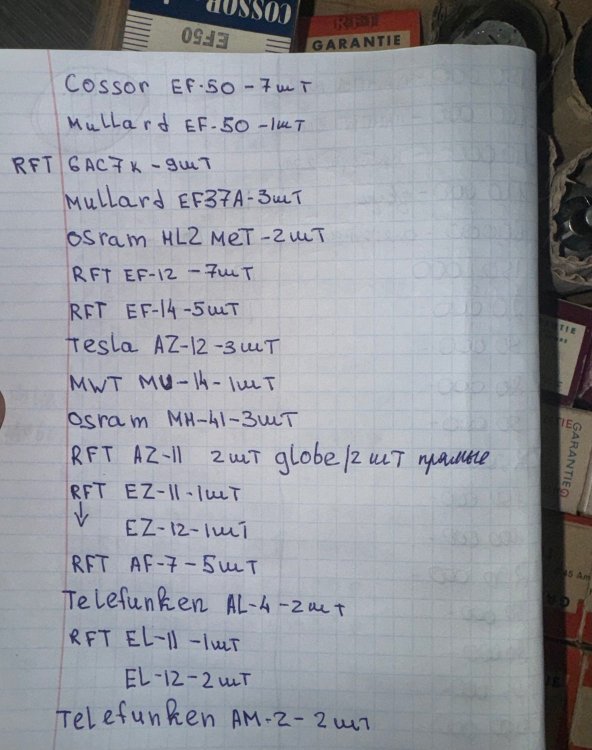 COSSOR
EF50
GARANTIE
Cossor EF-50 - 7шт
Mullard EF-50 - 1шт
RFT 6AC7K - 9шт
Mullard EF37A - 3шт
Osram HL2 мет - 2шт
RFT EF-12 - 7шт
RFT EF-14 - 5шт
Tesla AZ-12 - 3шт
MWT MU-14 - 1шт
Osram MH-41 - 3шт
RFT AZ-11 2шт globe/2шт прямые
RFT EZ-11 - 1шт
↓ EZ-12 - 1шт
RFT AF-7 - 5шт
Telefunken AL-4 - 2шт
RFT EL-11 - 1шт
EL-12 - 2шт
Telefunken AM-2 - 2шт
GARANTIE